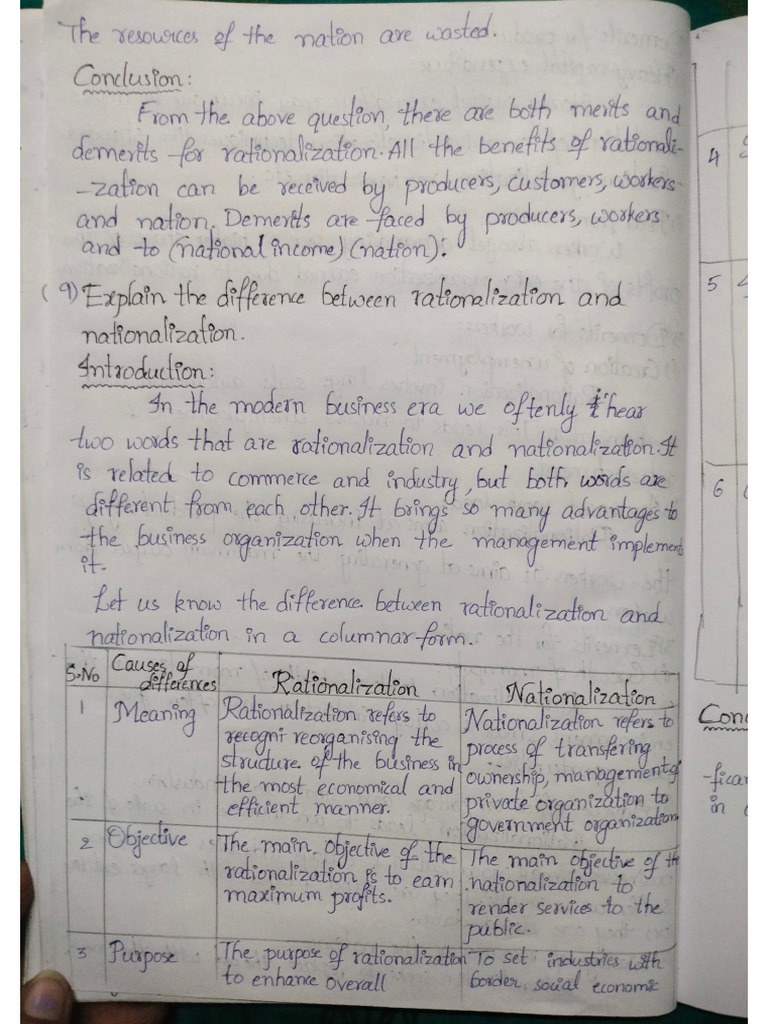 The resources of the nation are wasted.
Conclusion:
From the above question, there are both merits and
demerits for rationalization. All the benefits of rationali-
-zation can be received by producers, customers, workers
and nation. Demerits are faced by producers, workers
and to (national income) (nation).
9) Explain the difference between rationalization and
nationalization.
Introduction:
In the modern business era we oftenly hear
two words that are rationalization and nationalization. It
is related to commerce and industry, but both words are
different from each other. It brings so many advantages to
the business organization when the management implement
it.
Let us know the difference between rationalization and
nationalization in a columnar form.
S.No
Causes of
differences
Rationalization
Nationalization
1
Meaning
Rationalization refers to
recogni reorganising the
structure of the business in
the most economical and
efficient manner.
Nationalization refers to
process of transfering
ownership, management of
private organization to
government organization
2
Objective
The main objective of the
rationalization is to earn
maximum profits.
The main objective of the
nationalization to
render services to the
public.
3
Purpose
The purpose of rationalization
to enhance overall
To set industries with
border social economic
4
5
6
Conc
-ficar
in